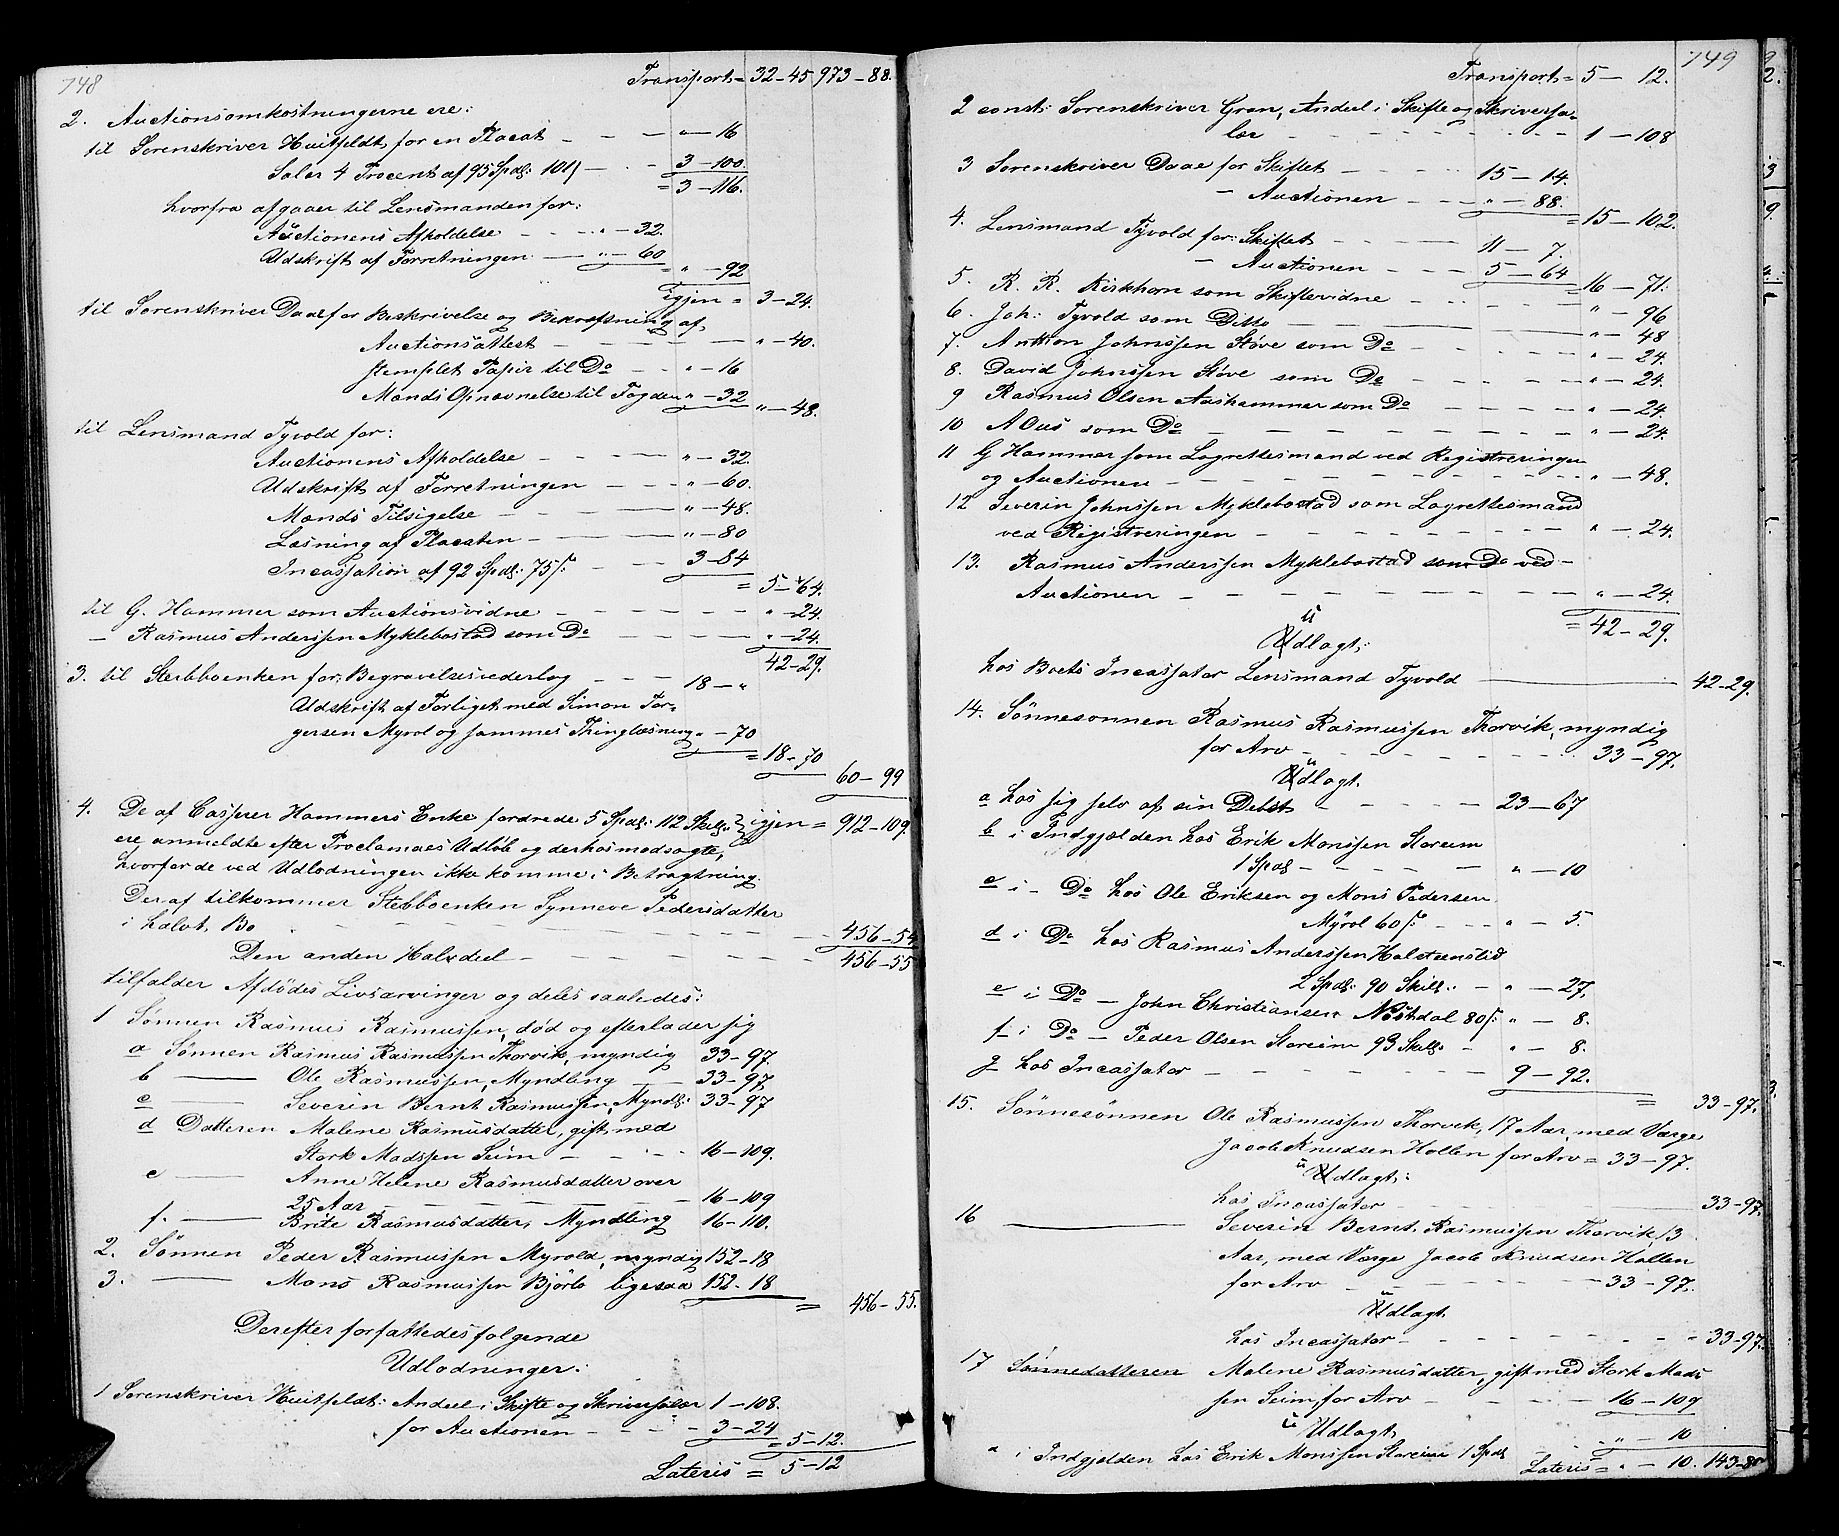 748
Transport = 32-45 973-88.
2. Auctionsomkostningerne ere:
til Sorenskriver Huitfeldt for en Placat - - - " - 16
Salær 4 Procent af 95 Spd: 101 β - - - 3-100.
= 3-116.
hvorfra afgaaer til Lensmanden for:
Auctionens Afholdelse - - - " - 32.
Udskrift af Forretningen - " - 60
= " - 92
igjen = 3-24.
til Sorenskriver Daae for Beskrivelse og Bekræftning af
Auctionsattest - - - " - 40.
stemplet Papir til Do - - " - 16
Mænds Opnævnelse til Tagden " - 32
" - 48.
til Lensmand Tyvold for:
Auctionens Afholdelse - - - " - 32.
Udskrift af Forretningen - - - " - 60.
Mænds Tilsigelse - - - " - 48.
Læsning af Placaten - - - " - 80
Incassation af 92 Spd: 75 β: - - 3-84
= 5-64.
til G. Hammer som Auctionsvidne - - - " - 24.
- Rasmus Anderssen Myklebostad som Do - - - " - 24.
42-29.
3. til Sterbboenken for: Begravelsesvederlag - - - 18 - "
Udskrift af Forliget med Simon Tor-
gersen Myrol og sammes Thinglæsning " - 70
= 18-70
60-99
igjen = 912-109.
4. De af Casper Hammers Enke fordrede 5 Spd: 112 Skill:
ere anmeldte efter Proclamaets Udløb og derhos modsagte,
hvorfor de ved Udlodningen ikke komme i Betragtning.
Deraf tilkommer Stebboenken Synneve Pedersdatter
i halvt Bo - - - 456-54
Den anden Halvdeel - - - 456-55
tilfalder Afdødes Livsarvinger og deles saaledes:
1 Sønnen Rasmus Rasmussen, død og efterlader sig
a Sønnen Rasmus Rasmussen Thorvik, myndig 33-97.
b — Ole Rasmussen, Myndling - - 33-97,
c — Severin Bernt Rasmussen, Myndl: 33-97
d Datteren Malene Rasmusdatter, gift med
Stork Madssen Seim - - - 16-109.
e — Anne Helene Rasmusdatter over
25 Aar - - - 16-109
f. — Brite Rasmusdatter, Myndling 16-110.
2. Sønnen Peder Rasmussen Myrold, myndig 152-18
3. — Mons Rasmussen Bjørlo ligesaa 152-18
= 456-55.
Derefter forfattedes følgende
Udlodninger:
1 Sorenskriver Huitfeldt: Andeel i Skifte og Skriversalær 1-108.
for Auctionen - - - 3-24
= 5-12.
Lateris = 5-12
749
Transport = 5-12.
2 const: Sorenskriver Gran, Andeel i Skifte og Skriversa-
lær - - - 1-108
3 Sorenskriver Daae for Skiftet - - - 15-14.
- Auctionen - - - " - 88.
= 15-102.
4. Lensmand Tyvold for: Skiftet - - - 11-7.
- Auctionen - - - 5-64
= 16-71.
5. R. R. Kirkhorn som Skiftevidne - - - " - 96
6. Joh: Tyvold som Ditto - - - " - 48
7. Anthon Johnssen Støve som Do - - - " - 24.
8. David Johnssen Støve som Do - - - " - 24.
9 Rasmus Olsen Aashammer som Do - - - " - 24.
10 A Ous som Do - - - " - 24.
11 G Hammer som Lagrettesmand ved Registreringen
og Auctionen - - - " - 48.
12 Severin Johnssen Myklebostad som Lagrettesmand
ved Registreringen - - - " - 24.
13. Rasmus Anderssen Myklebostad som Do ved -
Auctionen - - - " - 24.
= 42-29.
Udlagt:
hos Boets Incassator Lensmand Tyvold — 42-29.
14. Sønnesønnen Rasmus Rasmussen Thorvik, myndig
for Arv - - - 33-97.
Udlagt.
a hos sig selv af sin Debet - - - 23-67
b i Indgjælden hos Erik Monssen Storeim
1 Spd - - - " - 10
c i - Do hos Ole Eriksen og Mons Pedersen
Myrol 60 β: - - - " - 5.
d i Do hos Rasmus Anderssen Halsteenslid
2 Spd: 90 Skill: - " - 27.
e i Do - John Christiansen Nøstdal 80 β: " - 8.
f i Do - Peder Olsen Storeim 93 Skill: - " - 8.
g hos Incassator - - - 9-92.
= 33-97.
15. Sønnesønnen Ole Rasmussen Thorvik, 17 Aar, med Værge
Jacob Knudsen Hollen for Arv = 33-97.
Udlagt:
hos Incassator - - - 33-97.
16 — Severin Bernt Rasmussen Thorvik, 13
Aar, med Værge Jacob Knudsen Hollen
for Arv - - - 33-97.
Udlagt
hos Incassator - - - 33-97.
17 Sønnedatteren Malene Rasmusdatter, gift med Stork Mads-
sen Seim, for Arv - - - 16-109
Udlagt
a i Indgjælden hos Erik Monssen Storeim 1 Spd - " - 10
Lateris = " - 10. 143-85